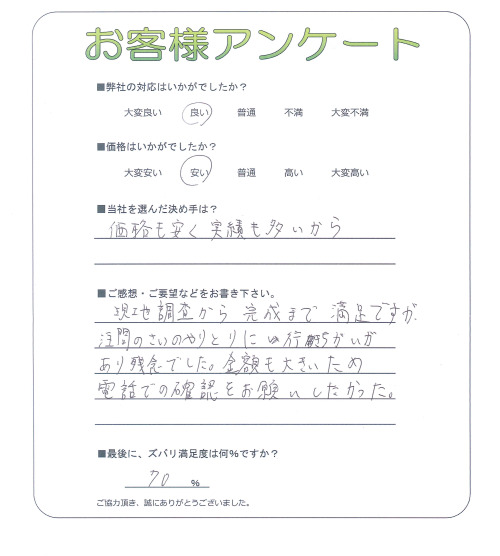 お客様アンケート
■弊社の対応はいかがでしたか？
大変良い 良い 普通 不満 大変不満
■価格はいかがでしたか？
大変安い 安い 普通 高い 大変高い
■当社を選んだ決め手は？
価格も安く実績も多いから
■ご感想・ご要望などをお書き下さい。
現地調査から完成まで満足ですが
注問のさいのやりとりに行きちがいが
あり残念でした。金額も大きいため
電話での確認をお願いしたかった。
■最後に、ズバリ満足度は何％ですか？
70 ％
ご協力頂き、誠にありがとうございました。